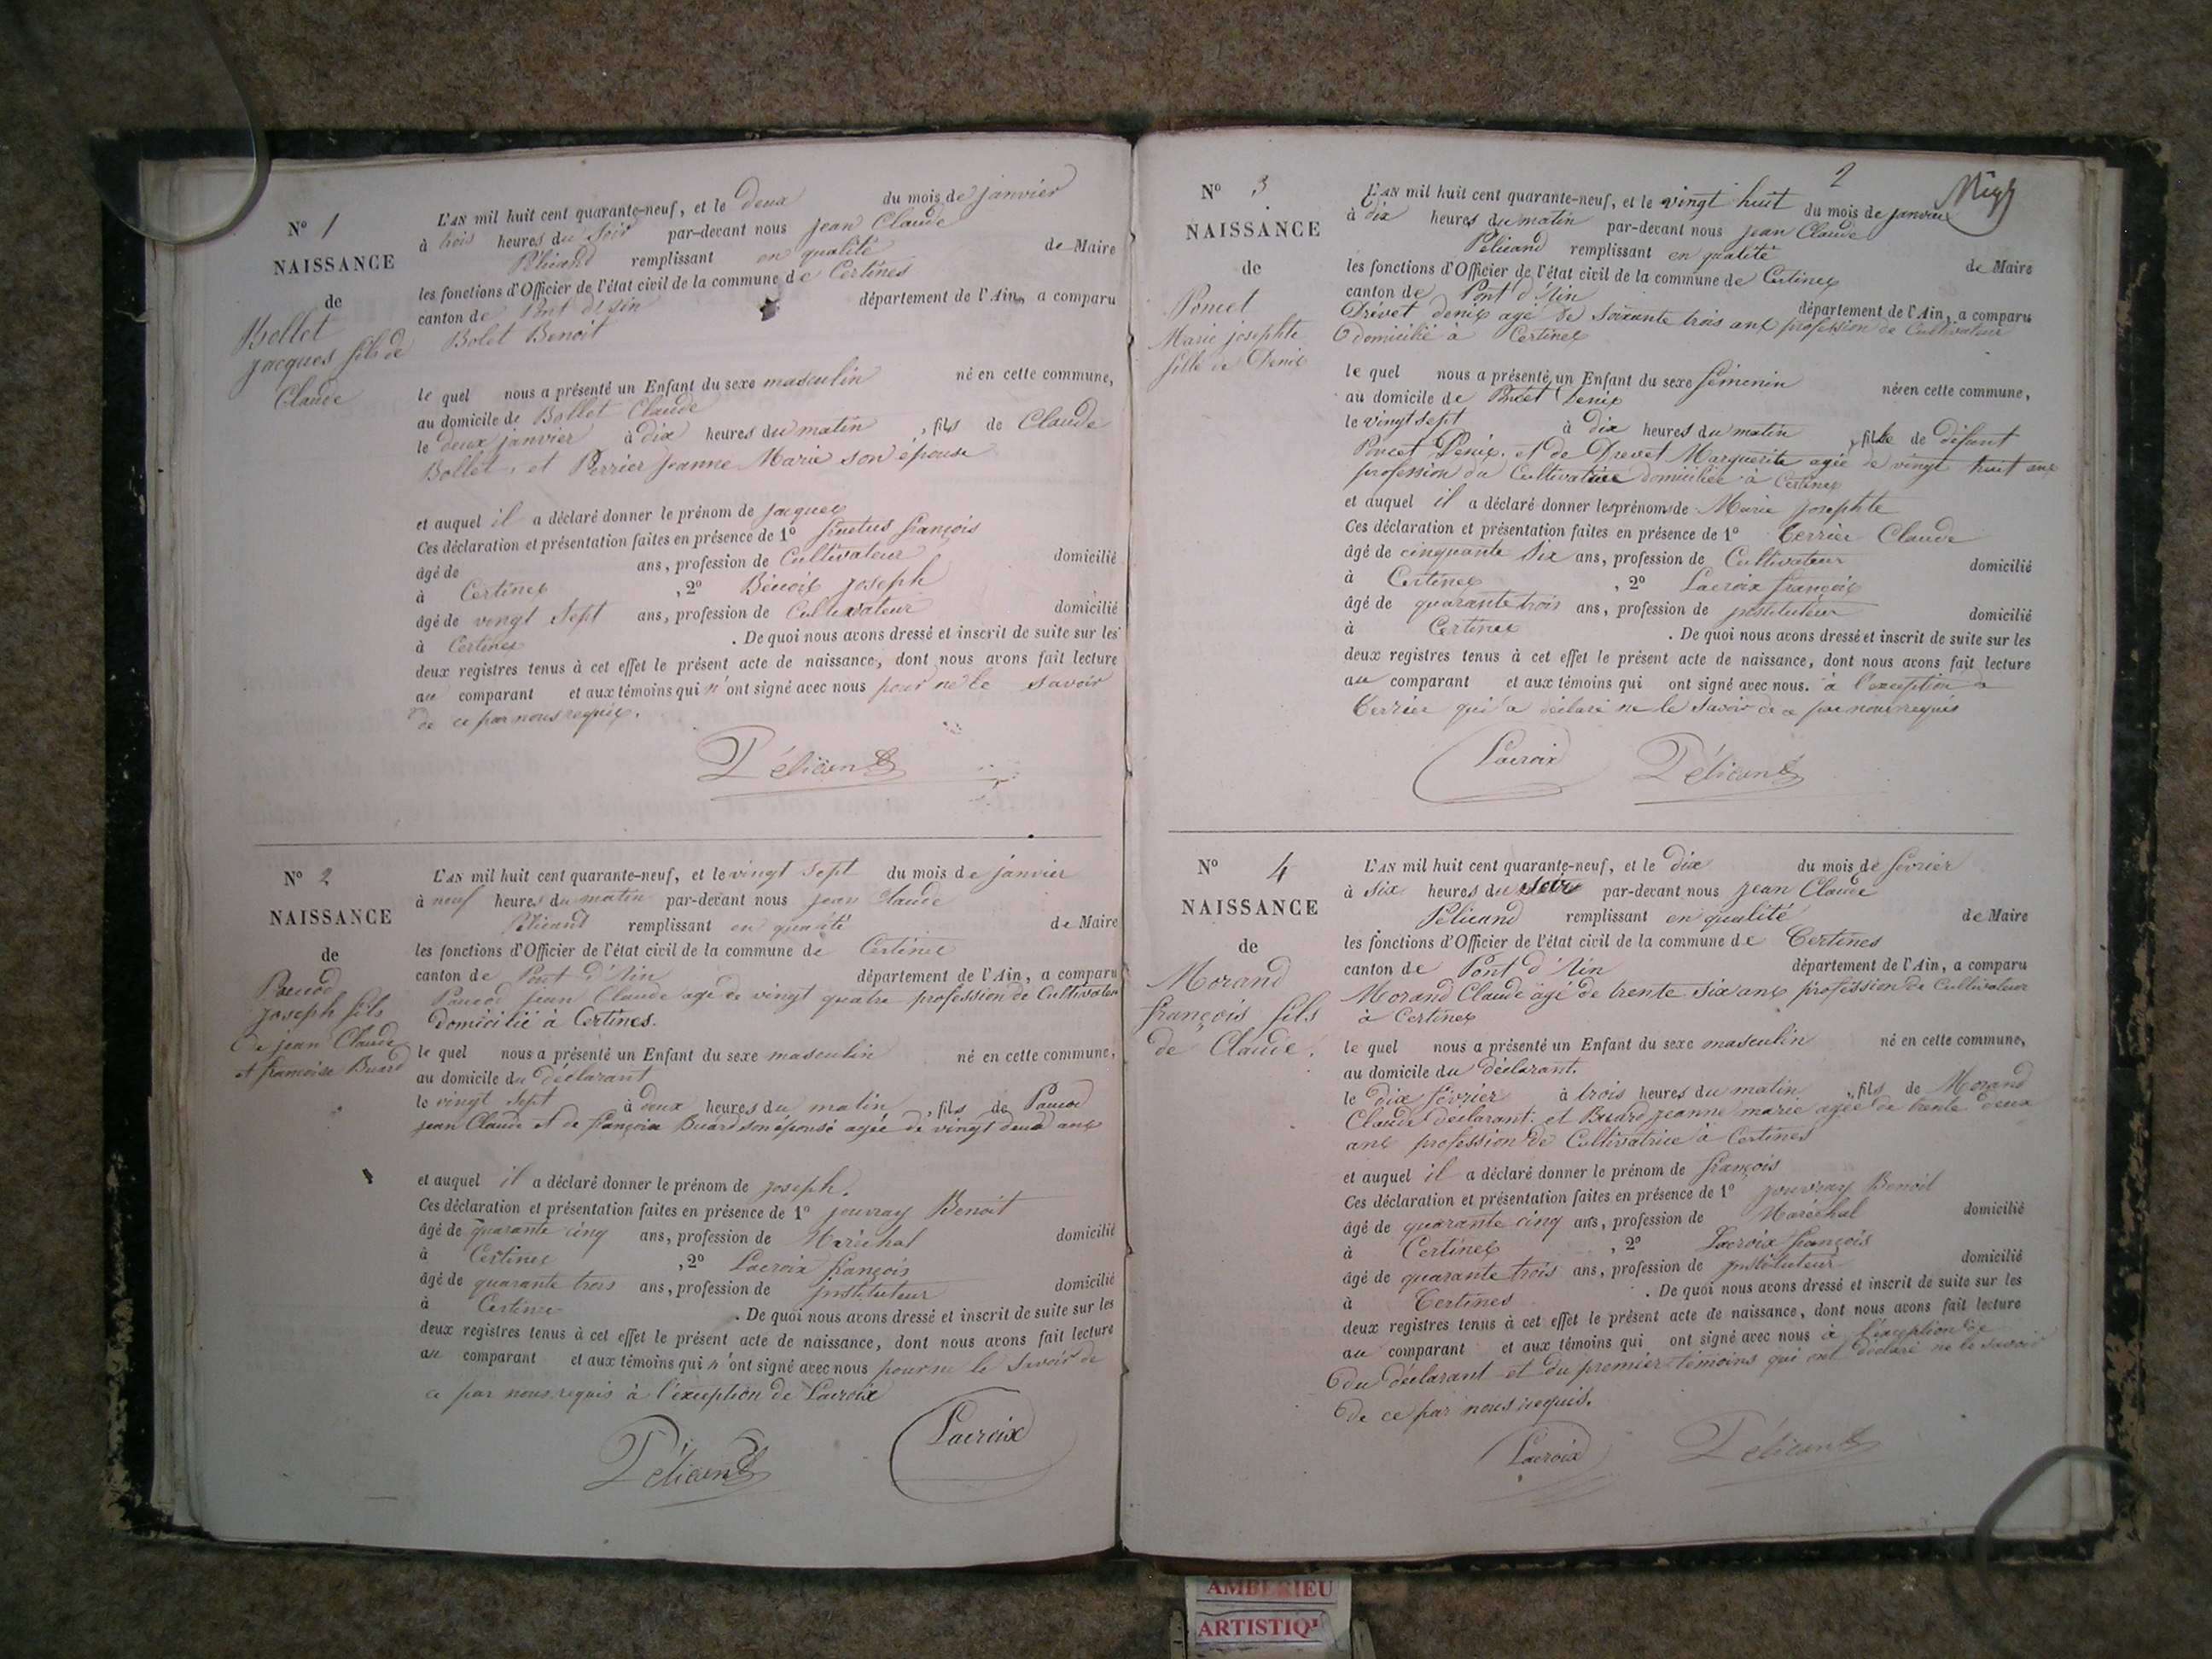 N° 1
NAISSANCE
de
Bollet
jacques fils de
Claude
L'AN mil huit cent quarante-neuf, et le deux du mois de janvier
à trois heures du soir par-devant nous jean Claude
Pélicand remplissant en qualité de Maire
les fonctions d'Officier de l'état civil de la commune de Certines
canton de Pont d'Ain département de l'Ain, a comparu
Bolet Benoit
le quel nous a présenté un Enfant du sexe masculin né en cette commune,
au domicile de Bollet Claude
le deux janvier à dix heures du matin, fils de Claude
Bollet et Perrier jeanne Marie son épouse
et auquel il a déclaré donner le prénom de jacques
Ces déclaration et présentation faites en présence de 1° françois
âgé de ans, profession de Cultivateur domicilié
à Certines, 2° Benoit joseph
âgé de vingt sept ans, profession de Cultivateur domicilié
à Certines. De quoi nous avons dressé et inscrit de suite sur les
deux registres tenus à cet effet le présent acte de naissance, dont nous avons fait lecture
au comparant et aux témoins qui n'ont signé avec nous pour ne le savoir
de ce par nous requis.
Pélicand
N° 2
NAISSANCE
de
Paucod
joseph fils
de jean Claude
et francoise Buard
L'AN mil huit cent quarante-neuf, et le vingt sept du mois de janvier
à neuf heures du matin par-devant nous jean Claude
Pélicand remplissant en qualité de Maire
les fonctions d'Officier de l'état civil de la commune de Certines
canton de Pont d'Ain département de l'Ain, a comparu
Paucod jean Claude agé de vingt quatre profession de Cultivateur
domicilié à Certines.
le quel nous a présenté un Enfant du sexe masculin né en cette commune,
au domicile du déclarant
le vingt sept à deux heures du matin, fils de Paucod
jean Claude et de françoise Buard son épouse agée de vingt deux ans
et auquel il a déclaré donner le prénom de joseph.
Ces déclaration et présentation faites en présence de 1° jouvray Benoit
âgé de quarante cinq ans, profession de Maréchal domicilié
à Certines, 2° Lacroix françois
âgé de quarante trois ans, profession de instituteur domicilié
à Certines. De quoi nous avons dressé et inscrit de suite sur les
deux registres tenus à cet effet le présent acte de naissance, dont nous avons fait lecture
au comparant et aux témoins qui n'ont signé avec nous pour ne le savoir de
ce par nous requis à l'exception de Lacroix
Pélicand Lacroix
2
N° 3
NAISSANCE
de
Poncet
Marie josephte
fille de Denis
L'AN mil huit cent quarante-neuf, et le vingt huit du mois de janvier
à dix heures du matin par-devant nous jean Claude
Pélicand remplissant en qualité de Maire
les fonctions d'Officier de l'état civil de la commune de Certines
canton de Pont d'Ain département de l'Ain, a comparu
Drevet denis agé de soixante trois ans profession de Cultivateur
domicilié à Certines
le quel nous a présenté un Enfant du sexe féminin née en cette commune,
au domicile de Poncet Denis
le vingt sept à dix heures du matin, fille de défunt
Poncet Denis et de Drevet Marguerite agée de vingt huit ans
profession de Cultivatrice domiciliée à Certines
et auquel il a déclaré donner les prénoms de Marie josephte
Ces déclaration et présentation faites en présence de 1° Terrier Claude
âgé de cinquante six ans, profession de Cultivateur domicilié
à Certines, 2° Lacroix françois
âgé de quarante trois ans, profession de instituteur domicilié
à Certines. De quoi nous avons dressé et inscrit de suite sur les
deux registres tenus à cet effet le présent acte de naissance, dont nous avons fait lecture
au comparant et aux témoins qui ont signé avec nous. à l'exception de
Terrier qui a déclaré ne le savoir de ce par nous requis
Lacroix Pélicand
N° 4
NAISSANCE
de
Morand
françois fils
de Claude.
L'AN mil huit cent quarante-neuf, et le dix du mois de février
à six heures du soir par-devant nous jean Claude
Pélicand remplissant en qualité de Maire
les fonctions d'Officier de l'état civil de la commune de Certines
canton de Pont d'Ain département de l'Ain, a comparu
Morand Claude agé de trente six ans profession de Cultivateur
à Certines
le quel nous a présenté un Enfant du sexe masculin né en cette commune,
au domicile du déclarant.
le dix février à trois heures du matin, fils de Morand
Claude déclarant et Buard jeanne marie agée de trente deux
ans profession de Cultivatrice à Certines
et auquel il a déclaré donner le prénom de françois
Ces déclaration et présentation faites en présence de 1° jouvray Benoit
âgé de quarante cinq ans, profession de Maréchal domicilié
à Certines, 2° Lacroix françois
âgé de quarante trois ans, profession de instituteur domicilié
à Certines. De quoi nous avons dressé et inscrit de suite sur les
deux registres tenus à cet effet le présent acte de naissance, dont nous avons fait lecture
au comparant et aux témoins qui ont signé avec nous à l'exception de
du déclarant et du premier témoins qui ont déclaré ne le savoir
de ce par nous requis.
Lacroix Pélicand
AMBERIEU
ARTISTIQ